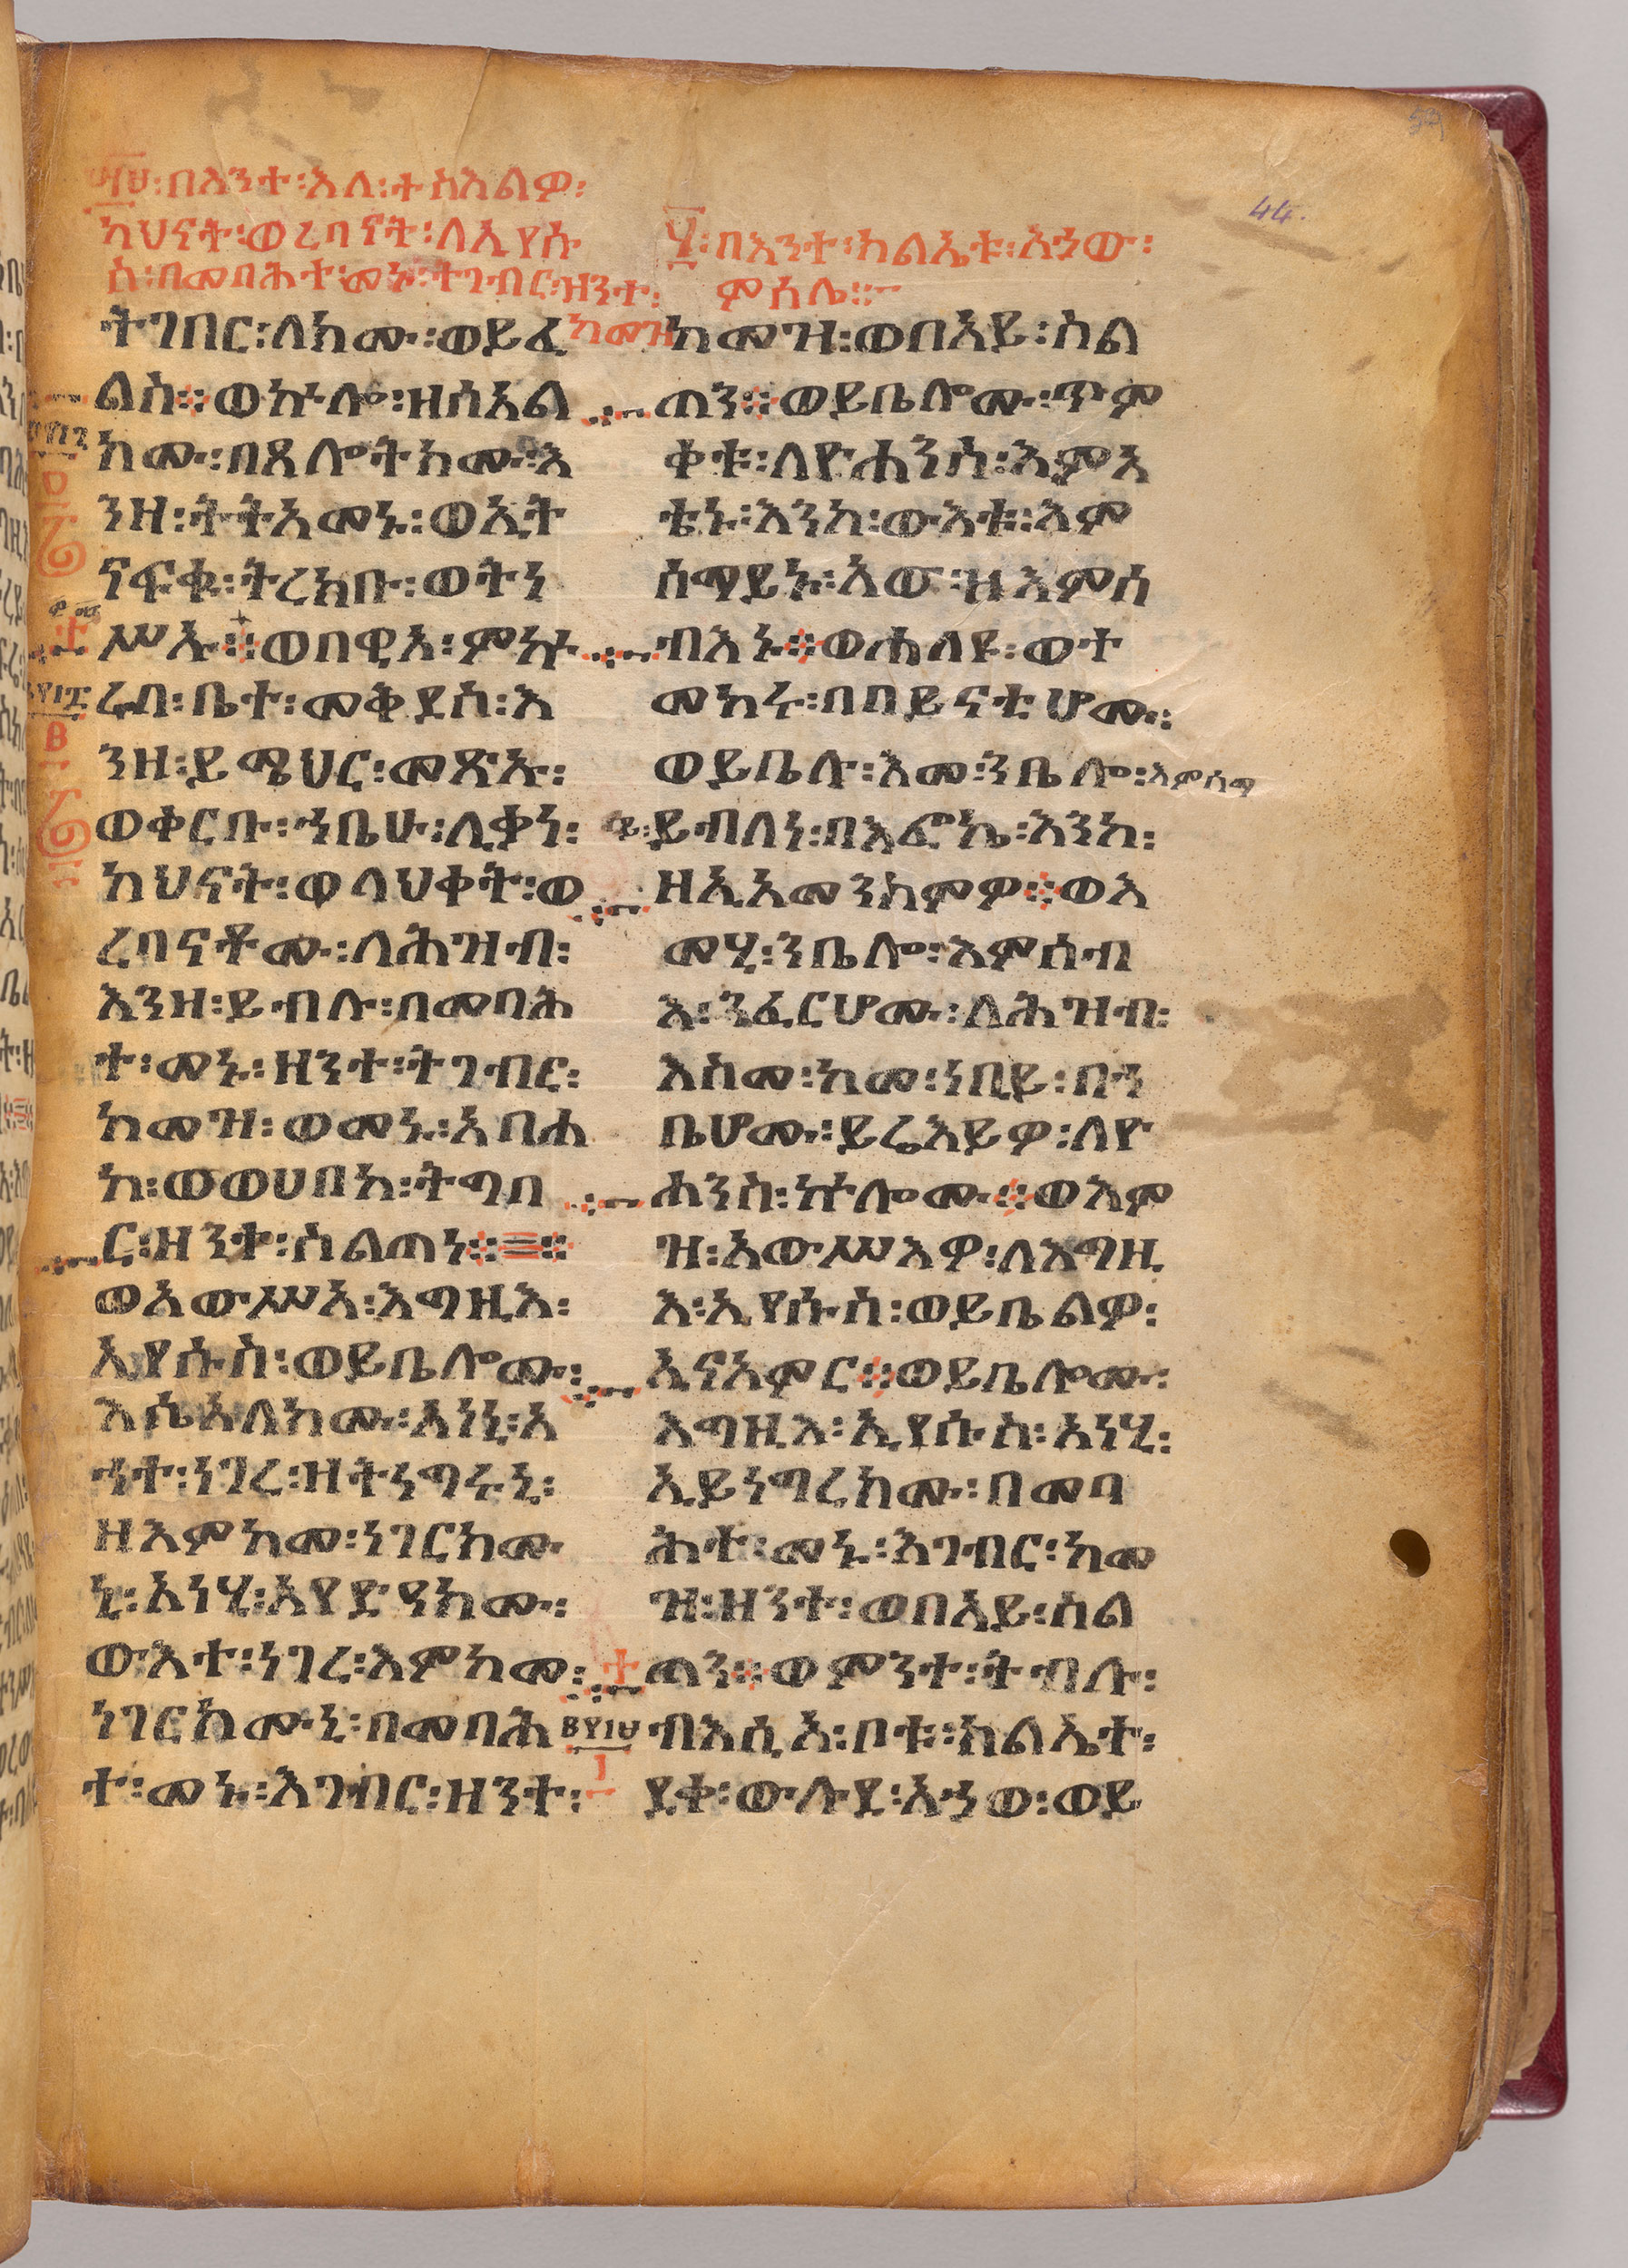 በእንተ፡እለ፡ተስእልዎ፡
ካህናት፡ወረባናት፡ለኢየሱ
ስ፡በመባሕተ፡መኑ፡ተገብር፡ዝንተ፡
ትገበር፡ለክሙ፡ወይፈ
ልስ፨ወኵሎ፡ዘሰአል
ክሙ፡በጸሎትክሙ፡እ
ንዘ፡ትትአመኑ፡ወኢት
ናፍቁ፡ትረክቡ፡ወትነ
ሥኡ፨ወበዊአ፡ምኵ
ራበ፡ቤተ፡መቅደስ፡እ
ንዘ፡ይሜህር፡መጽኡ፡
ወቀርቡ፡ኀቤሁ፡ሊቃነ፡
ካህናት፡ወላህቀት፡ወ
ረባናቶሙ፡ለሕዝብ፡
እንዘ፡ይብሉ፡በመባሕ
ተ፡መኑ፡ዘንተ፡ትገብር፡
ከመዝ፡ወመኑ፡አባሐ
ከ፡ወወሀበከ፡ትግበ
ር፡ዘንተ፡ስልጠነ፨=፨
ወአውሥአ፡እግዚእ፡
ኢየሱስ፡ወይቤሎሙ፡
እሴአለክሙ፡አነኒ፡አ
ኀተ፡ነገረ፡ዘትነግሩኒ፡
ዘእምከመ፡ነገርክሙ
ኒ፡አነሂ፡አየድዓክሙ፡
ውእተ፡ነገረ፡እምከመ፡
ነገርክሙኒ፡በመባሕ
ተ፡መኑ፡እገብር፡ዘንተ፡
፡በእንተ፡ክልኤቱ፡አኃው፡
ምሰሌ፨
ከመዝ
ከመዝ፡ወበአይ፡ስል
ጠን፨ወይቤሎሙ፡ጥም
ቀቱ፡ለዮሐንስ፡እምአ
ይቴኑ፡እንከ፡ውእቱ፡እም
ሰማይኑ፡አው፡ዘእምሰ
ብእኑ፨ወሐለዩ፡ወተ
መከሩ፡በበይናቲሆሙ፡
ወይቤሉ፡እመ፡ንቤሎ፡እምሰማ
ይ፡ይብለነ፡በእፎኬ፡እንከ፡
ዘኢአመንክምዎ፨ወእ
መሂ፡ንቤሎ፡እምሰብ
እ፡ንፈርሆሙ፡ለሕዝብ፡
እስመ፡ከመ፡ነቢይ፡በኀ
ቤሆሙ፡ይሬእይዎ፡ለዮ
ሐንስ፡ኵሎሙ፨ወእም
ዝ፡አውሥእዎ፡ለእግዚ
እ፡ኢየሱስ፡ወይቤልዎ፡
ኢናአምር፨ወይቤሎሙ፡
እግዚእ፡ኢየሱስ፡አነሂ፡
ኢይነግረክሙ፡በመባ
ሕተ፡መኑ፡እገብር፡ከመ
ዝ፡ዘንተ፡ወበአይ፡ስል
ጠን፨ወምንተ፡ትብሉ፡
ብእሲ፡አ፡ቦቱ፡ክልኤተ፡
ደቀ፡ውሉደ፡አኃወ፡ወይ
44.